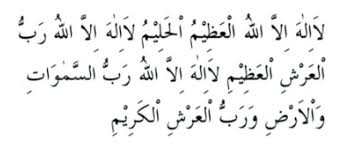 لَاۤاِلٰهَ اِلَّا اللهُ الْعَظِيْمُ الْحَلِيْمُ لَاۤاِلٰهَ اِلَّا اللهُ رَبُّ
الْعَرْشِ الْعَظِيْمِ لَاۤاِلٰهَ اِلَّا اللهُ رَبُّ السَّمٰوَاتِ
وَالْاَرْضِ وَرَبُّ الْعَرْشِ الْكَرِيْمِ